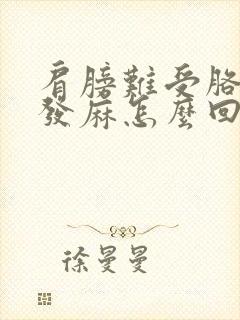 肩膀難受胳
發麻怎麼回
徐曼曼